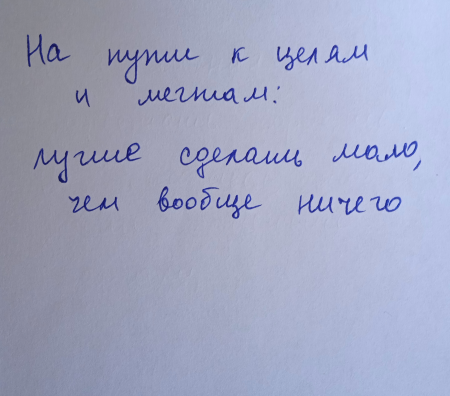 На пути к целям
и мечтам:
лучше сделать мало,
чем вообще ничего